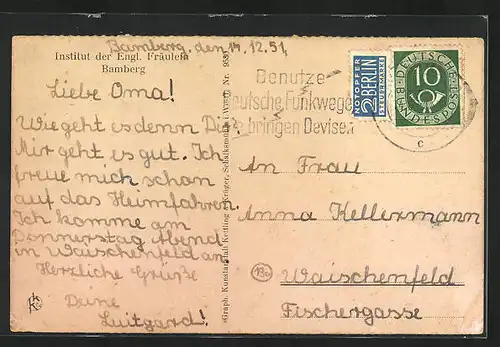 Bamberg, den 14.12.51.
Institut der Engl. Fräulein
Bamberg
Liebe Oma!
Wie geht es denn Dir?
Mir geht es gut. Ich
freue mich schon
auf das Heimfahren.
Ich komme am
Donnerstag Abend
in Waischenfeld an
Herzliche Grüße
Deine
Luitgard!
Graph. Kunstanstalt Kettling Krüger, Schalksmühle i. Westf. Nr.
Benutze
Deutsche Funkwege
bringen Devisen
c
NOTOPFER
2 BERLIN
STEUERMARKE
DEUTSCHE
BUNDESPOST
10
An Frau
Anna Kellermann
Waischenfeld
Fischergasse